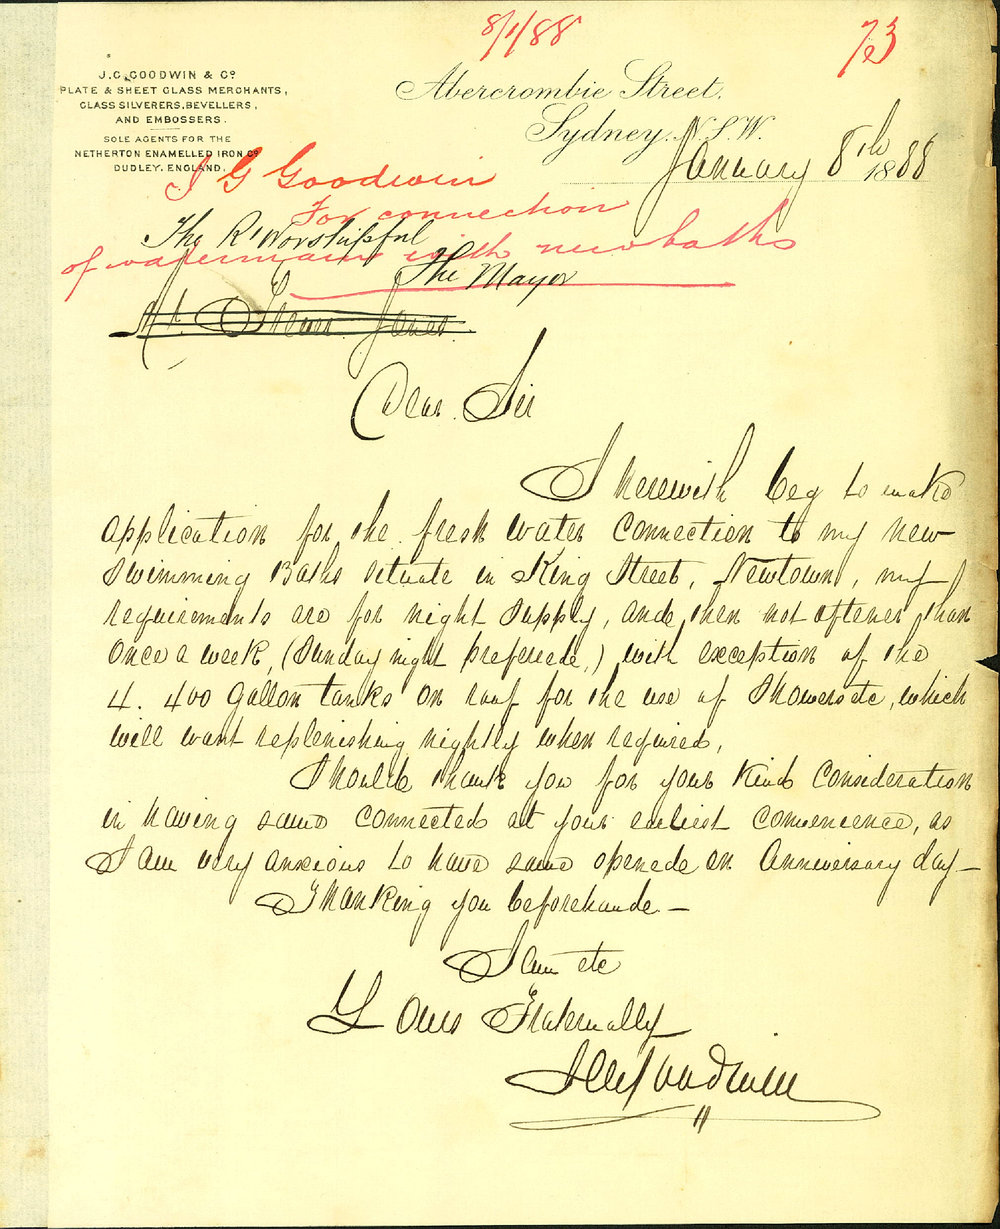 8/1/88
73
J.C. GOODWIN & Co
PLATE & SHEET GLASS MERCHANTS,
GLASS SILVERERS, BEVELLERS,
AND EMBOSSERS.
SOLE AGENTS FOR THE
NETHERTON ENAMELLED IRON Co
DUDLEY, ENGLAND.
Abercrombie Street.
Sydney. N.S.W.
January 8th 1888
J G Goodwin
For connection
of watermain with new baths
The Rt Worshipful
The Mayor
Dear Sir
I herewith beg to make
application for the fresh water connection to my new
Swimming Baths situate in King Street, Newtown, my
requirements are for night supply, and then not oftener than
once a week, (Sunday night preferred,) with exception of the
4. 400 gallon tanks on roof for the use of Showers etc, which
will want replenishing nightly when required,
Should thank you for your kind consideration
in having same connected at your earliest convenience, as
I am very anxious to have same opened on Anniversary day—
Thanking you beforehand.—
I am etc
Yours Fraternally